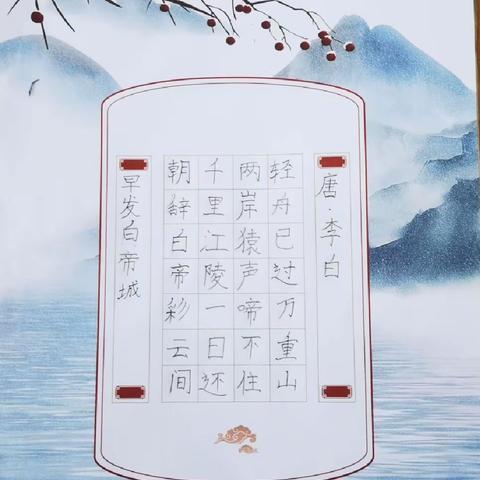 早发白帝城
朝辞白帝彩云间
千里江陵一日还
两岸猿声啼不住
轻舟已过万重山
唐·李白